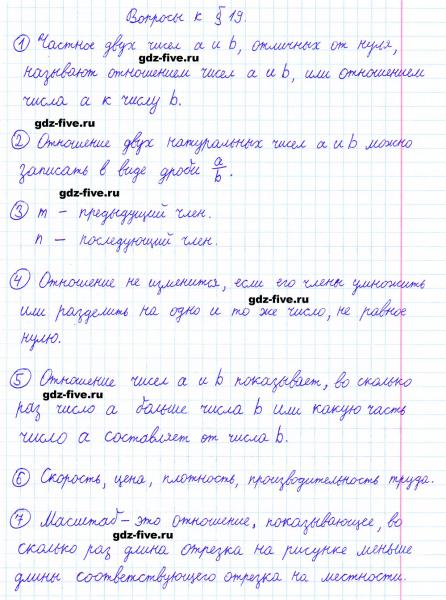 Вопросы к § 19.
① Частное двух чисел a и b, отличных от нуля,
gdz-five.ru
называют отношением чисел a и b, или отношением
числа a к числу b.
gdz-five.ru
② Отношение двух натуральных чисел a и b можно
записать в виде дроби a/b.
gdz-five.ru
③ m – предыдущий член.
n – последующий член.
④ Отношение не изменится, если его члены умножить
gdz-five.ru
или разделить на одно и то же число, не равное
нулю.
⑤ Отношение чисел a и b показывает, во сколько
gdz-five.ru
раз число a больше числа b или какую часть
число a составляет от числа b.
⑥ Скорость, цена, плотность, производительность труда.
gdz-five.ru
⑦ Масштаб – это отношение, показывающее, во
gdz-five.ru
сколько раз длина отрезка на рисунке меньше
длины соответствующего отрезка на местности.